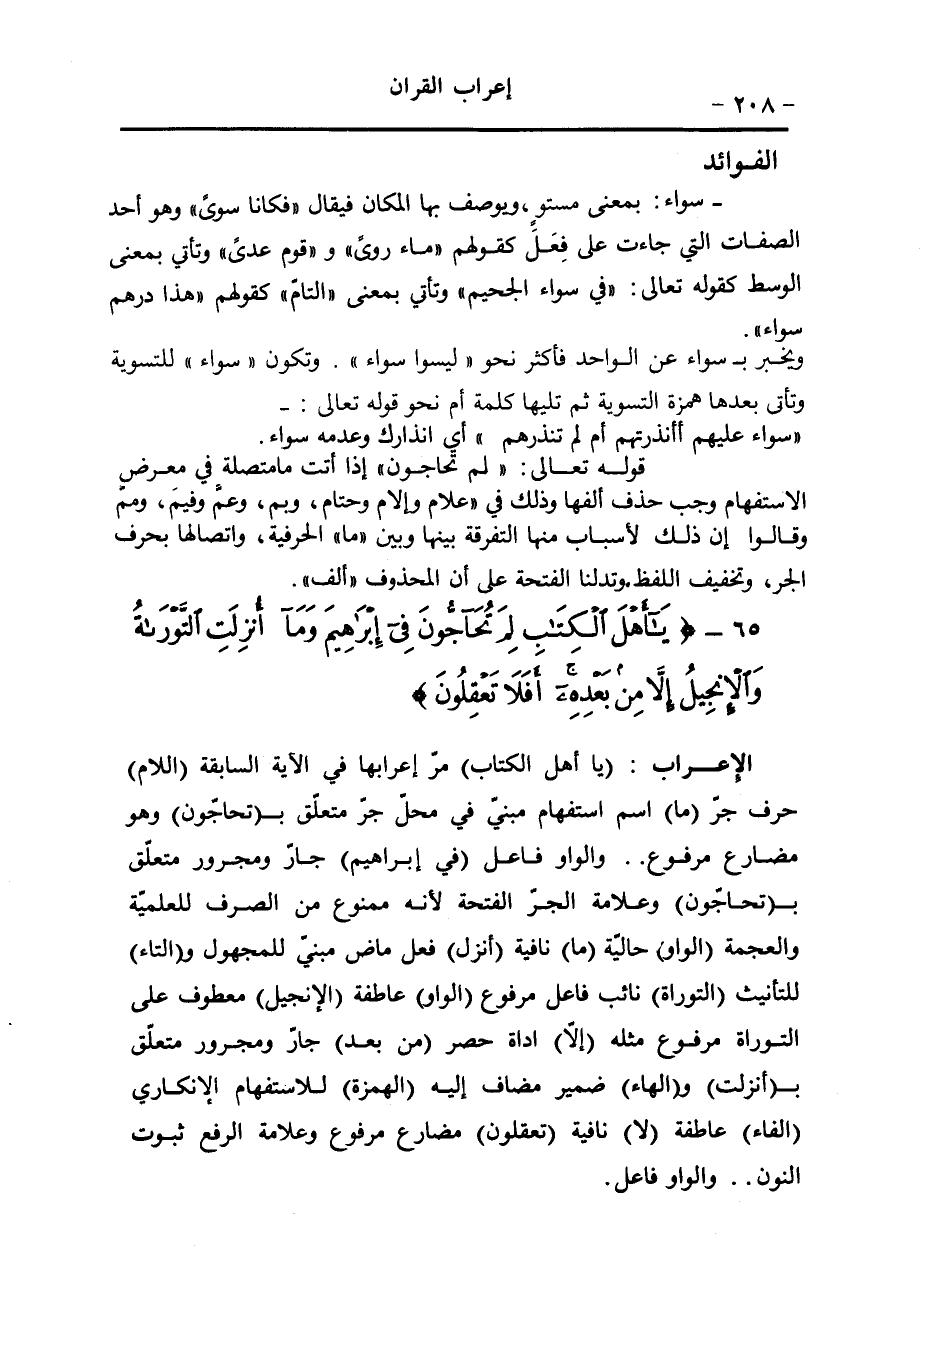 إعراب القران
- ٢٠٨ -
الفـوائد
ـ سواء: بمعنى مستوٍ ،ويوصف بها المكان فيقال «فكانا سوىً» وهو أحد
الصفـات التي جاءت على فِعَلَ كقـولهم «مـاء روىً» و «قوم عدىً» وتأتي بمعنى
الوسط كقوله تعالى: «في سواء الجحيم» وتأتي بمعنى «التامّ» كقولهم «هذا درهم
سواء».
ويخبر بـ سواء عن الـواحد فأكثر نحو « ليسوا سواء » . وتكون « سواء » للتسوية
وتأتى بعدها همزة التسوية ثم تليها كلمة أم نحو قوله تعالى : ـ
«سواء عليهم أأنذرتهم أم لم تنذرهم » أي انذارك وعدمه سواء.
قولـه تعـالى: « لم تحاجـون» إذا أتت مامتصلة في معـرض
الاستفهام وجب حذف ألفها وذلك في «علام وإلام وحتام، وبم، وعمَّ وفيمَ، وممّ
وقـالـوا إن ذلـك لأسبـاب منها التفرقة بينها وبين «ما» الحرفية، واتصالها بحرف
الجر، وتخفيف اللفظ.وتدلنا الفتحة على أن المحذوف «ألف».
٦٥ - ﴿ يَـٰٓأَهْلَ ٱلْكِتَـٰبِ لِمَ تُحَآجُّونَ فِىٓ إِبْرَٰهِيمَ وَمَآ أُنزِلَتِ ٱلتَّوْرَىٰةُ
وَٱلْإِنجِيلُ إِلَّا مِنۢ بَعْدِهِۦٓ ۚ أَفَلَا تَعْقِلُونَ ﴾
الإعـــراب : (يا أهل الكتاب) مرّ إعرابها في الآية السابقة (اللام)
حرف جرّ (ما) اسم استفهام مبنيّ في محلّ جرّ متعلّق بـ(تحاجّون) وهو
مضـارع مرفـوع.. والواو فـاعـل (في إبـراهيم) جـارّ ومجـرور متعلّق
بـ(تحـاجّون) وعـلامة الجـرّ الفتحة لأنـه ممنوع من الصـرف للعلميّة
والعجمة (الواو) حاليّة (ما) نافية (أنزل) فعل ماض مبنيّ للمجهول و(التاء)
للتأنيث (التوراة) نائب فاعل مرفوع (الواو) عاطفة (الإنجيل) معطوف على
التـوراة مرفـوع مثله (إلّا) اداة حصر (من بعـد) جارّ ومجـرور متعلّق
بـ(أنزلت) و(الهاء) ضمير مضاف إليه (الهمزة) لـلاستفهام الإنكـاري
(الفاء) عاطفة (لا) نافية (تعقلون) مضارع مرفوع وعلامة الرفع ثبـوت
النون.. والواو فاعل.